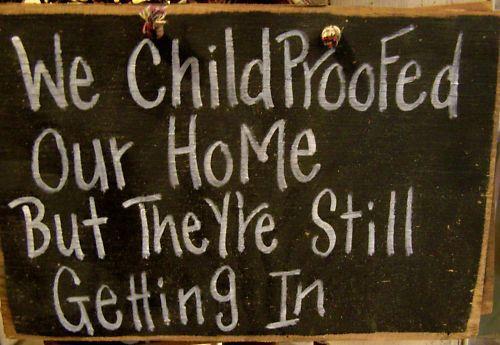 We ChildProoFed
Our HoMe
But TheY're Still
Getting In